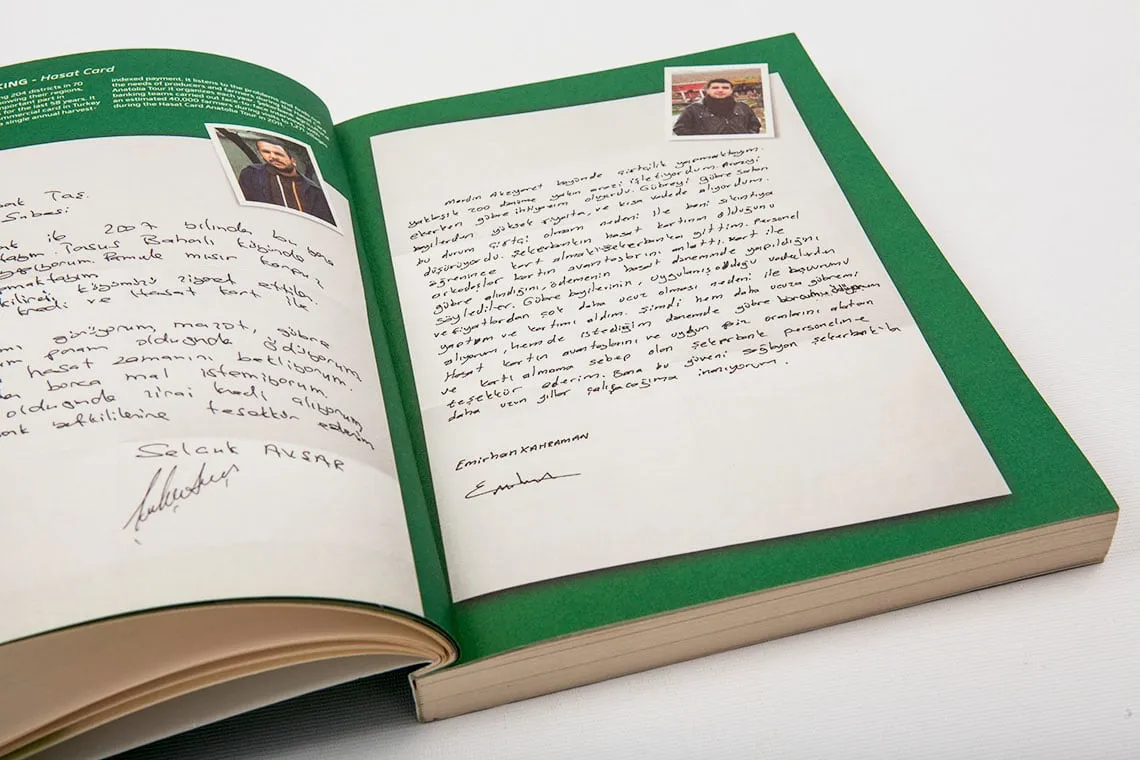 KING - Hasat Card
ng 204 districts in 70
owing their regions,
mportant part in
for the last 58 years, it
ommercial card in Turkey
a single annual harvest-
indexed payment, it listens to the problems and finds out
the needs of producers and farmers during the
Anatolia Tour it organizes each year. Şekerbank
banking teams carried out face-to-face interviews with
an estimated 40,000 farmers during visits to 1,271 villages
during the Hasat Card Anatolia Tour in 2011.
Taş.
Şubesi
2007 yılında bu yana
Tarsus Bahalı köyünde
Pamuk mısır karpuz
köyümü ziyaret ettiler
kredi ve Hasat kart ile
görüyorum, mazot, gübre
param olduğunda ödüyorum
hasat zamanını bekliyorum.
borca mal istemiyorum.
olduğunda zirai kredi alıyorum
yetkililerine teşekkür ederim
Selçuk AVŞAR
Mardin Akziyaret köyünde çiftçilik yapmaktayım.
yaklaşık 200 dönüme yakın arazi işletiyordum. Araziyi
ekerken gübre ihtiyacım oluyordu. Gübreyi gübre satan
bayilerden yüksek fiyatta, ve kısa vadede alıyordum.
bu durum çiftçi olmam nedeni ile beni sıkıntıya
düşürüyordu. Şekerbankın hasat kartının olduğunu
öğrenince kart almak Şekerbanka gittim. Personel
arkadaşlar kartın avantajlarını anlattı, kart ile
gübre alındığını, ödemenin hasat döneminde yapıldığını
söylediler. Gübre bayilerinin, uygulamış olduğu vadelerden
ve fiyatlardan çok daha ucuz olması nedeni ile başvurumu
yaptım ve kartımı aldım. Şimdi hem daha ucuza gübremi
alıyorum, hemde istediğim dönemde gübre borcumu ödüyorum
Hasat kartın avantajlarını ve uygun faiz oranlarını anlatan
ve kartı almama sebep olan Şekerbank personeline
teşekkür ederim. Bana bu güveni sağlayan Şekerbank'la
daha uzun yıllar çalışacağıma inanıyorum.
Emirhan KAHRAMAN